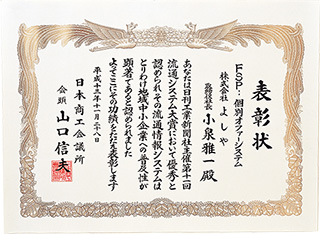 表彰状
FSP:個別オファーシステム
株式会社 よしや
小泉雅一殿
あなたは日刊工業新聞社主催第十一回
流通システム大賞において優秀と
認められその流通情報システムは
とりわけ地域中小企業への普及性が
顕著であると認められました
よってここにその功績をたたえ表彰します
平成十三年十一月二十八日
日本商工会議所
会頭 山口信夫